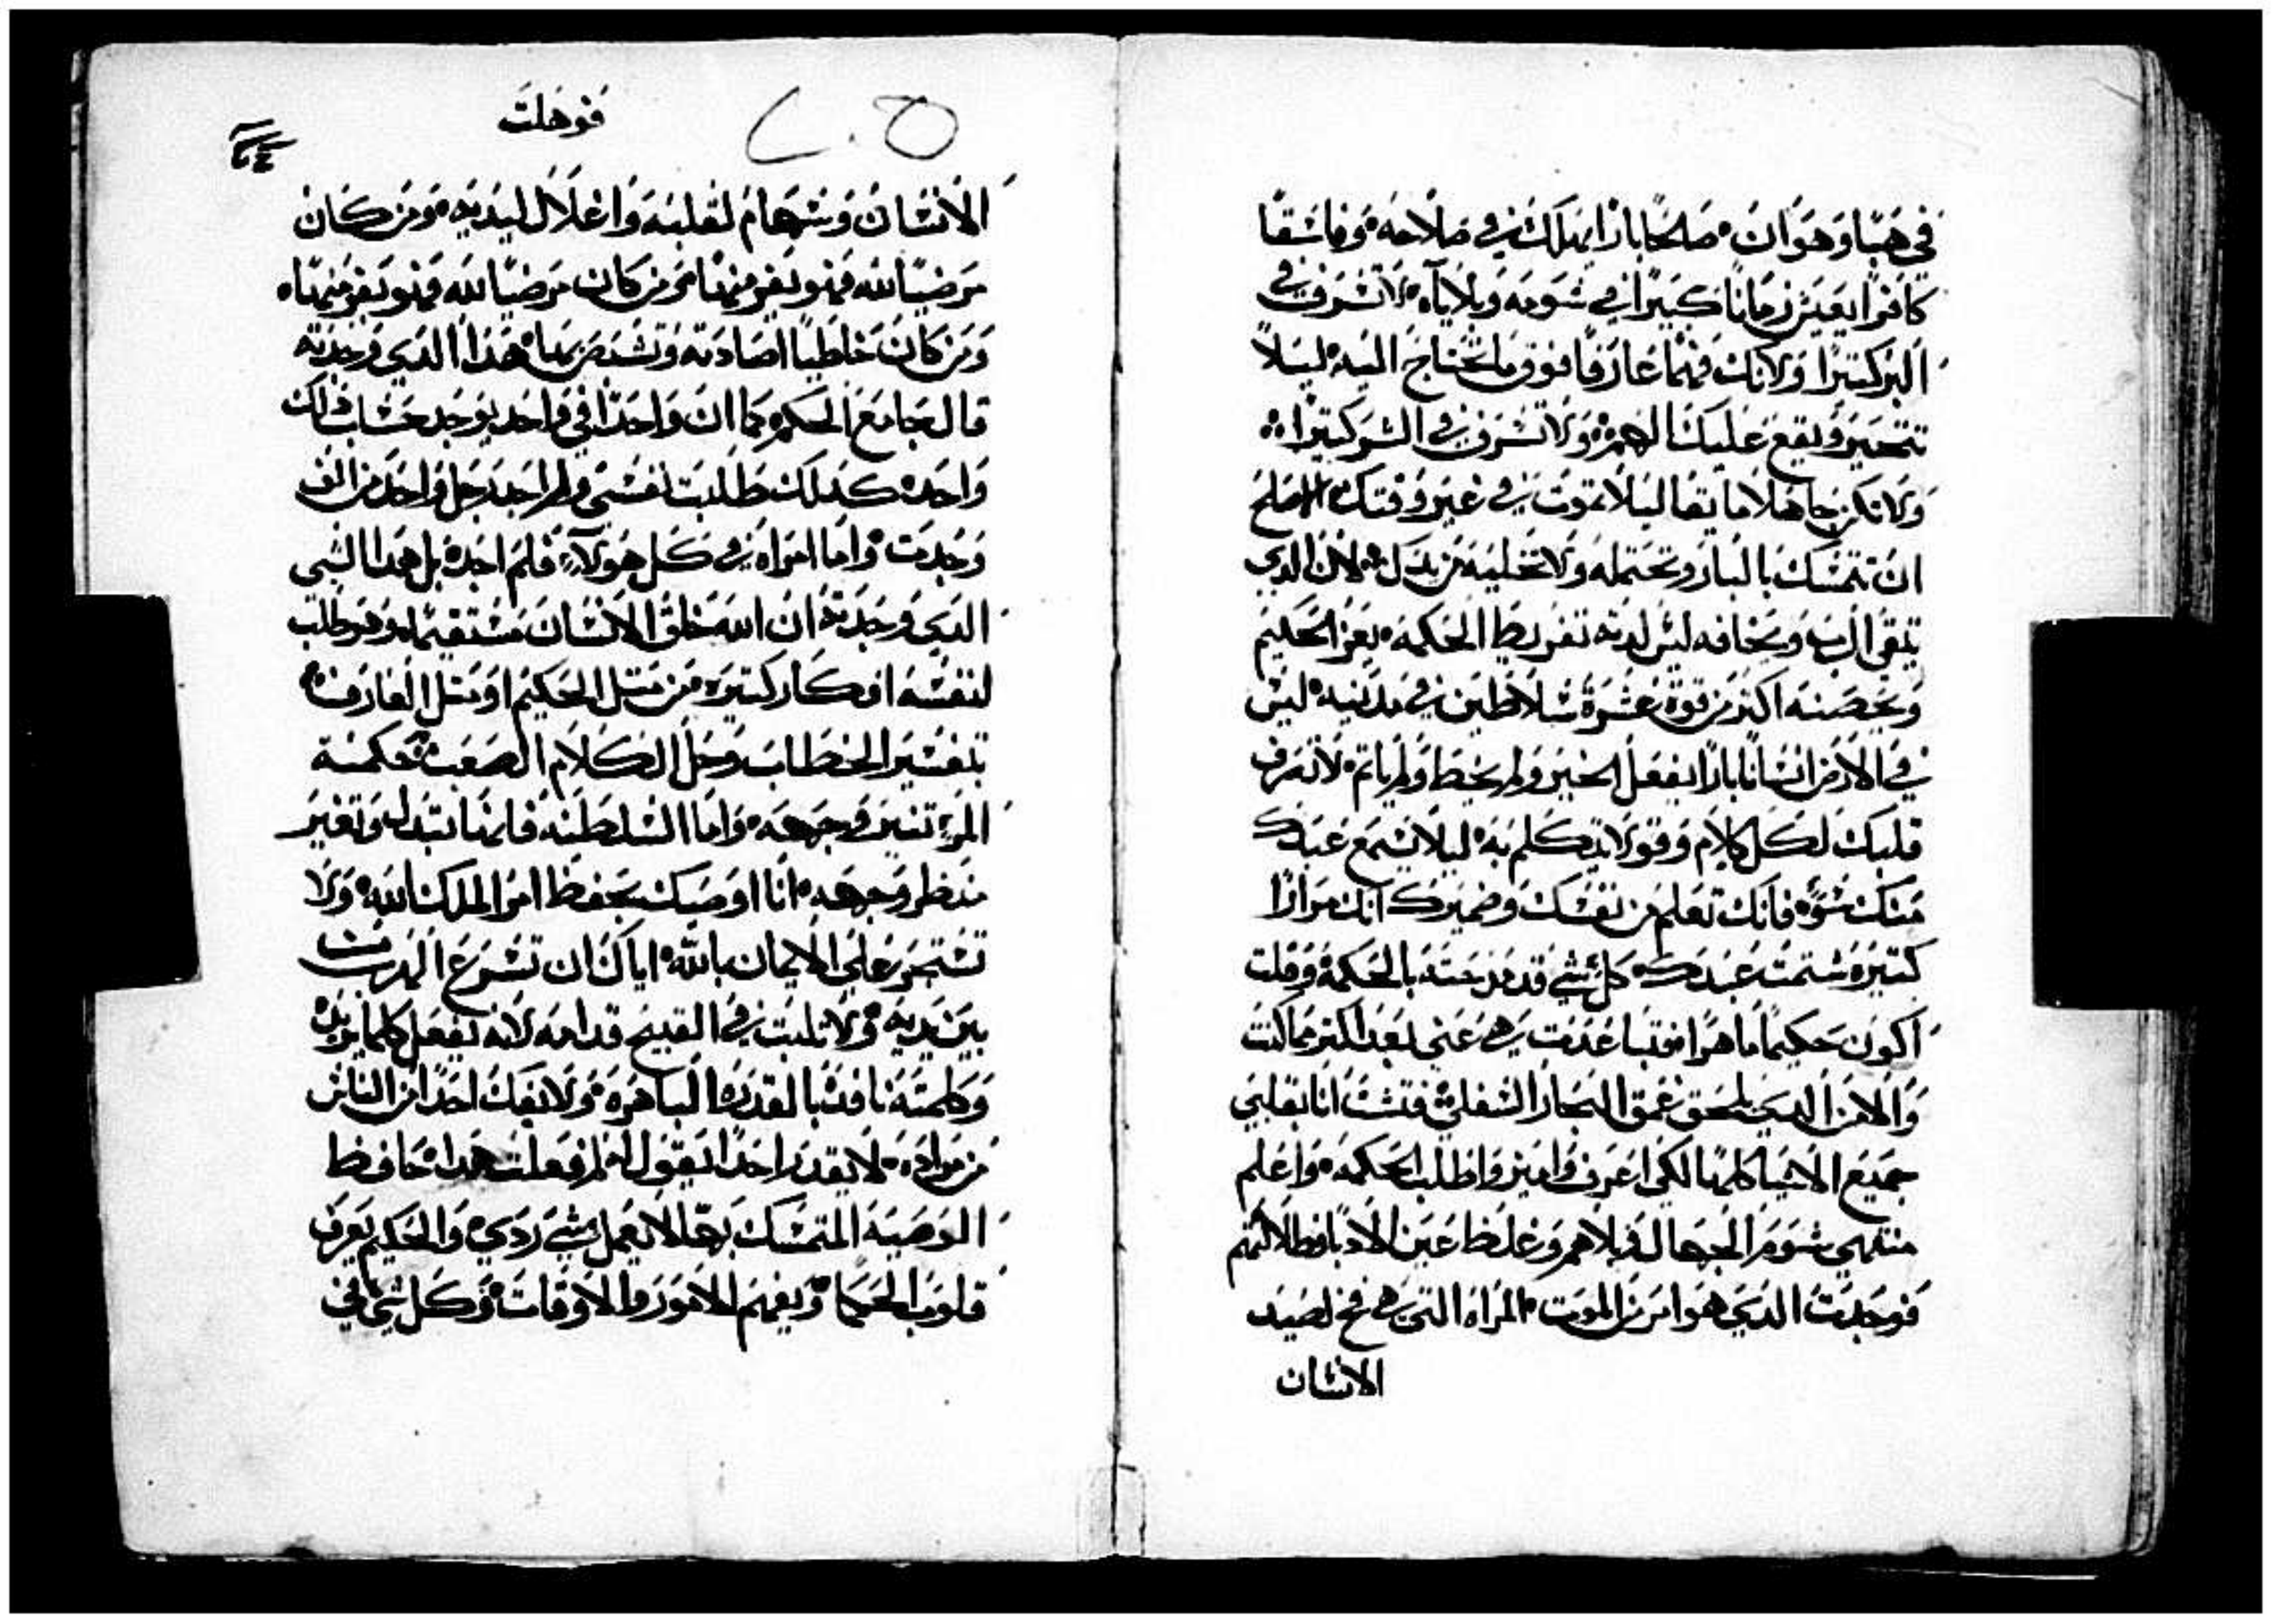 في هبا وهوان صالحا بارا يهلك في صلاحه وفاسقا
كافرا يعيش زمانا كبيرا في شومه وبلاياه لا تسرف في
البر كتيرا ولا تك فهما عارفا فوق ما تحتاج اليه ليلا
تتحير ويقع عليك الهم ولا تسرف في الشر كتيرا
ولا تكن جاهلا ما يقا ليلا تموت في غير وقتك الاصلح
ان تتمسك بالبار وتحتمله ولا تخليه من يدك لان الدي
يتقي الرب ويخافه ليس لديه تفريط الحكمه يعز الحكيم
ويحصنه اكتر من قوة عشرة سلاطين في مدينه ليس
في الارض انسانا بارا يفعل الخير ولم يخط ولم ياتم لا تصرف
قلبك لكل كلام وقول يتكلم به ليلا تسمع عبدك
منك سوه فانك تعلم من نفسك وضميرك انك مرارا
كتيره شتمت عبدك كل شي قد مزجته بالحكمة وقلت
اكون حكيما ماهرا فتباعدت هي عني بعد اكتر مما كنت
والان الدي يلحق عمق البحار السفلي فتشت انا بقلبي
جميع الاشيا كلها لكي اعرف واميز واطلب الحكمه واعلم
منتهي شوم الجهال وبلاهم وغلظ عين الادبا وضلالتهم
فوجدت الدي هو امر من الموت المراه التي هي فخ لصيد
الانسان
فوهلت
الانسان وسهام لقلبه واغلال ليديه ومن كان
مرضيا لله فهو يفر منها ومن كان مرضيا لله فهو يفر منها
ومن كان خاطيا اصادته وتشتص بها هدا الدي وجدته
قال جامع الحكم كما ان واحدا في واحد يوجد حساب دلك
واحده كدلك طلبت نفسي ولم اجد رجل واحد من الف
وجدت واما امراه في كل هولاء فلم اجده بل هدا الشي
الدي وجدته ان الله خلق الانسان مستقيما وهو طلب
لنفسه افكار كتيره من متل الحكيم او متل العارف
بتفسير الخطاب وحل الكلام الصعب حكمة
المرء تنير وجهه واما السلطنه فانها تبدل وتغير
منظر وجهه انا اوصيك بحفظ امر الملك لله ولا
تستجر علي الايمان بالله اياك ان تسرع الهرب
بين يديه ولا تلبت في القبيح قدامه لانه يفعل كلما يريد
وكلمته نافده بالقدره الباهره ولا يفك احدا من الناس
من مراده لا يقدر احدا يقول له لم فعلت هدا حافظ
الوصيه المتمسك بها لا يعمل شي ردي والحكيم يعرف
قلوب الحكما ويفهم الامور والاوقات وكل شي في